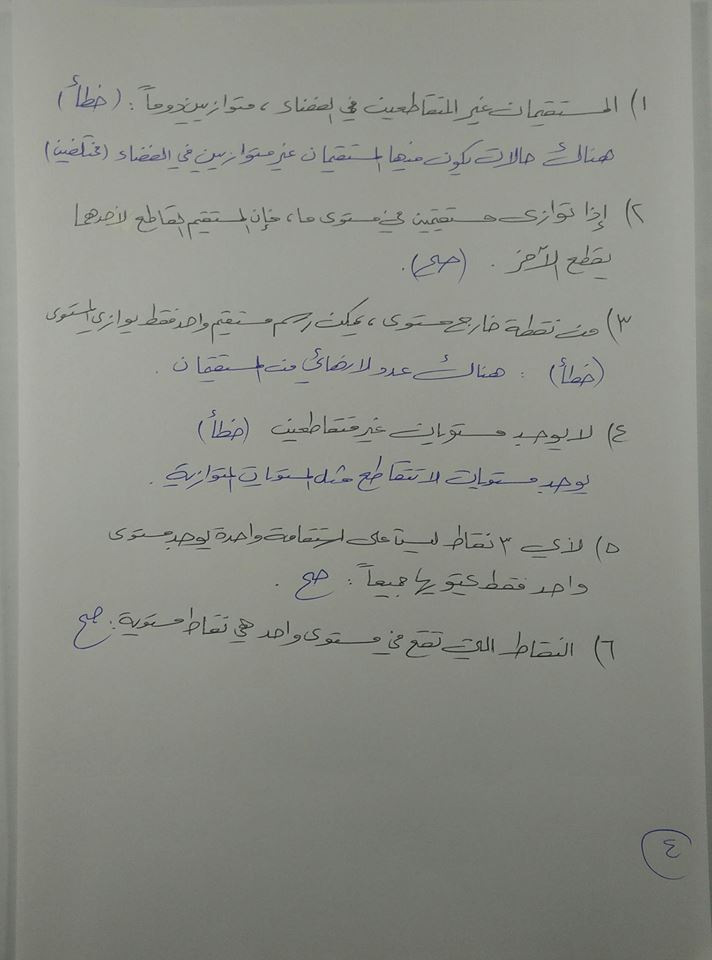 ١) المستقيمان غير المتقاطعين في الفضاء، متوازيين دوماً: (خطأ)
هناك حالات يكون فيها المستقيمان غير متوازيين في الفضاء (مختلفين)
٢) إذا توازى مستقيمين في مستوى ما، فإن المستقيم القاطع لأحدهما
يقطع الآخر. (صح).
٣) من نقطة خارج مستوى، يمكن رسم مستقيم واحد فقط يوازي المستوى
(خطأ): هناك عدد لا نهائي من المستقيمات.
٤) لا يوجد مستويات غير متقاطعين (خطأ)
يوجد مستويات لا تتقاطع مثل المستويات المتوازية.
٥) لأي ٣ نقاط ليست على استقامة واحدة يوجد مستوى
واحد فقط يحتويها جميعاً: صح.
٦) النقاط التي تقع في مستوى واحد هي نقاط مستوية: صح
٤